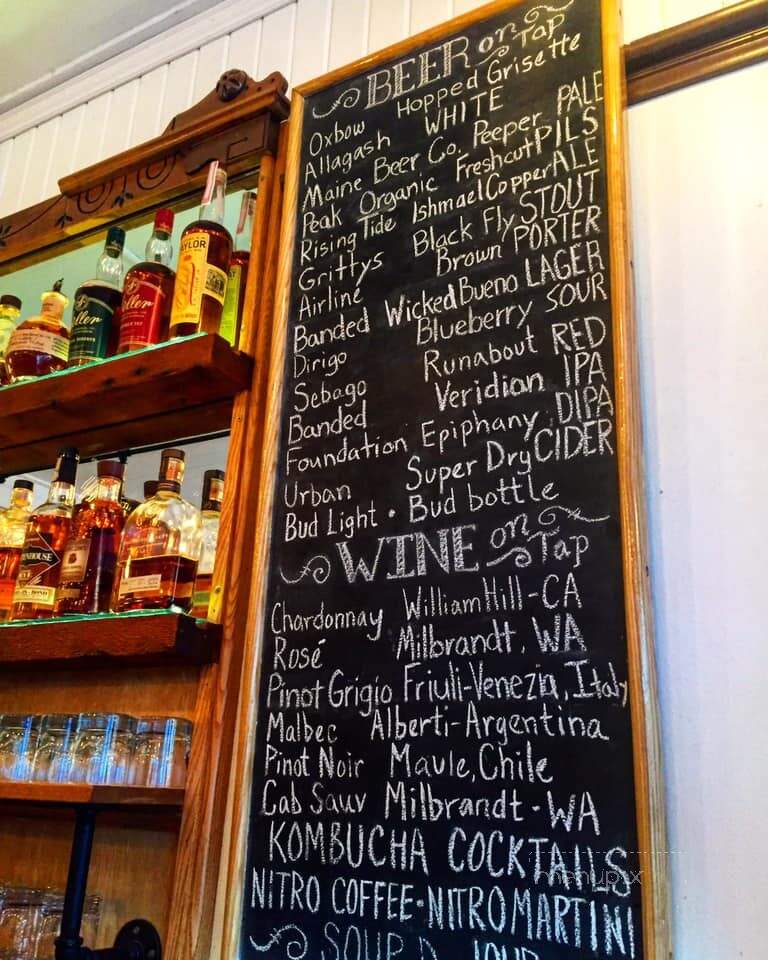 BEER on Tap
Oxbow Hopped Grisette
Allagash WHITE
Maine Beer Co. Peeper PALE
Peak Organic Freshcut PILS
Rising Tide Ishmael Copper ALE
Grittys Black Fly STOUT
Airline Brown PORTER
Banded Wicked Bueno LAGER
Dirigo Blueberry SOUR
Sebago Runabout RED
Banded Veridian IPA
Foundation Epiphany DIPA
Urban Super Dry CIDER
Bud Light • Bud bottle
WINE on Tap
Chardonnay William Hill - CA
Rosé Milbrandt, WA
Pinot Grigio Friuli-Venezia, Italy
Malbec Alberti-Argentina
Pinot Noir Maule, Chile
Cab Sauv Milbrandt - WA
KOMBUCHA COCKTAILS
NITRO COFFEE • NITRO MARTINI
SOUP D JOUR
TAYLOR
menupix